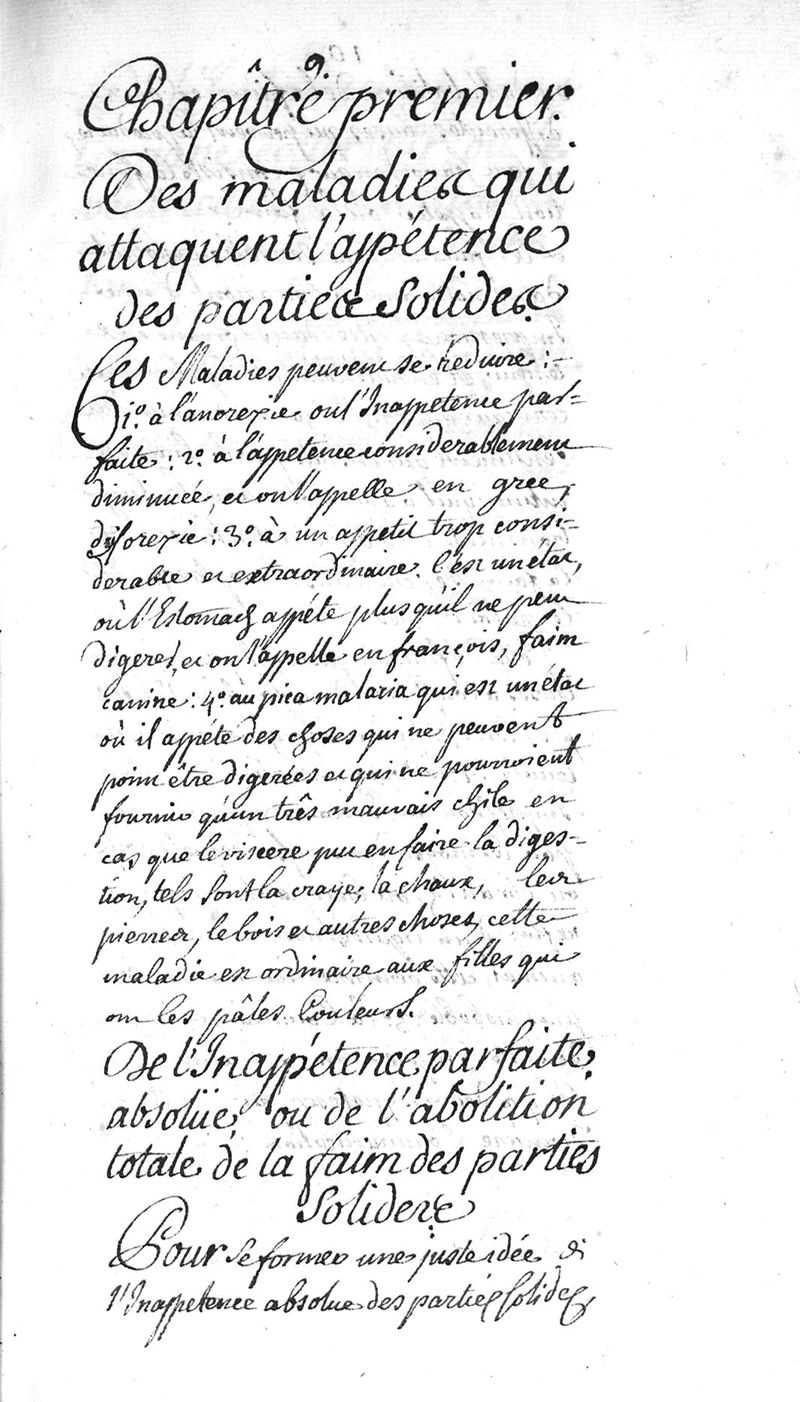 9
Chapître premier.
Des maladies qui
attaquent l'appétence
des parties Solides.
Ces Maladies peuvent se reduire :
1º. à l'anorexie ou l'Inappetence par-
faite : 2º. à l'appetence considerablement
diminuée, et on l'appelle en grec,
dysorexie : 3º. à un appetit trop consi-
derable et extraordinaire. C'est un état,
où l'Estomach appéte plus qu'il ne peut
digerer, et on l'appelle en françois, faim
canine : 4º. au pica malacia qui est un état
où il appéte des choses qui ne peuvent
point être digerées et qui ne pourroient
fournir qu'un très mauvais chile en
cas que le viscere put en faire la diges-
tion, tels sont la craye, la chaux, les
pierres, le bois et autres choses, cette
maladie est ordinaire aux filles qui
ont les pâles Couleurs.
De l'Inappétence parfaite,
absolüe, ou de l'abolition
totale de la faim des parties
Solides.
Pour se former une juste idée de
l'Inappetence absolue des parties solides,